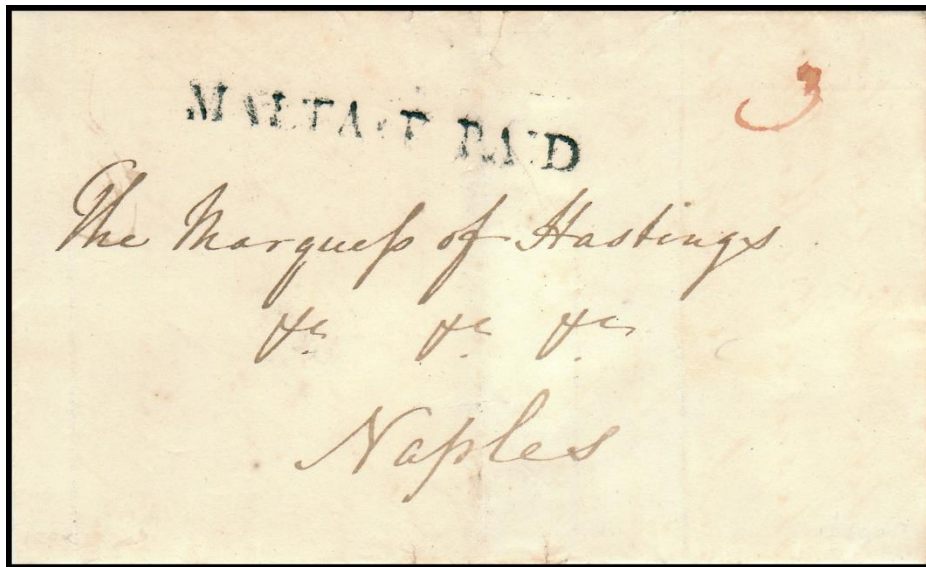 3
MALTA POST PAID
The Marquess of Hastings
&c. &c. &c.
Naples